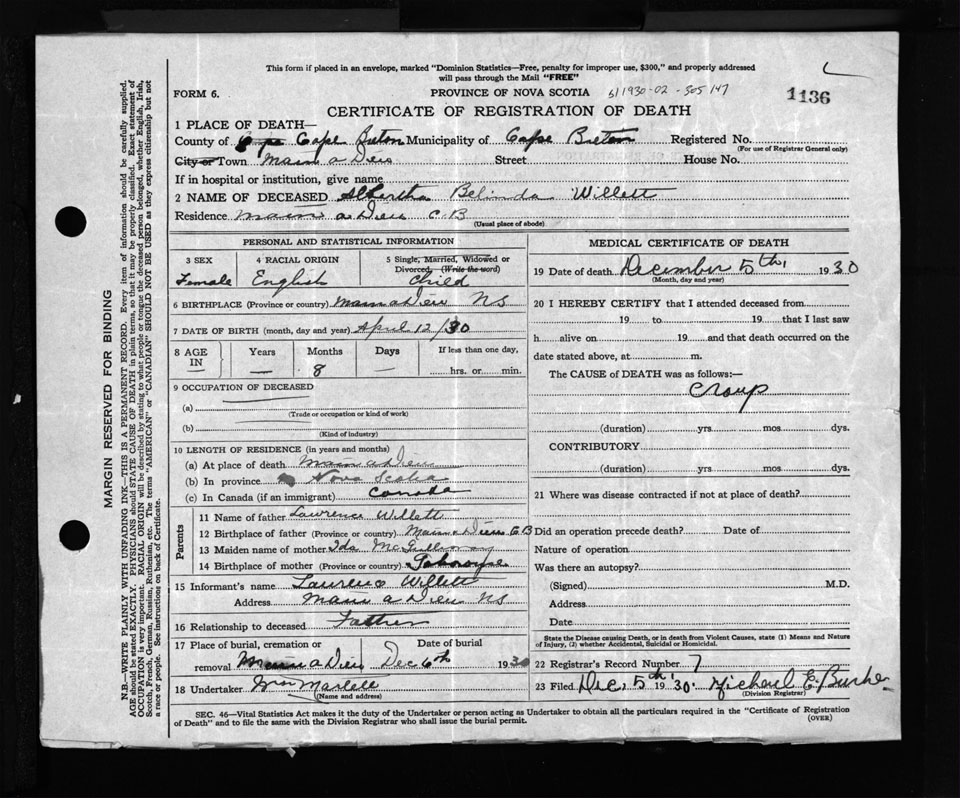 This form if placed in an envelope, marked "Dominion Statistics—Free, penalty for improper use, $300," and properly addressed
will pass through the Mail "FREE"
FORM 6. PROVINCE OF NOVA SCOTIA 1136
CERTIFICATE OF REGISTRATION OF DEATH
1 PLACE OF DEATH—
County of Cape Breton Municipality of Cape Breton Registered No.
(For use of Registrar General only)
City or Town Main a Dieu Street House No.
If in hospital or institution, give name
2 NAME OF DECEASED Albertha Belinda Willett
Residence Main a Dieu C.B
(Usual place of abode)
PERSONAL AND STATISTICAL INFORMATION
3 SEX 4 RACIAL ORIGIN 5 Single, Married, Widowed or
Divorced, (Write the word)
Female English Child
6 BIRTHPLACE (Province or country) Main a Dieu NS
7 DATE OF BIRTH (month, day and year) April 12/30
8 AGE IN Years Months Days If less than one day,
— 8 — hrs. or min.
9 OCCUPATION OF DECEASED
(a)
(Trade or occupation or kind of work)
(b)
(Kind of industry)
10 LENGTH OF RESIDENCE (in years and months)
(a) At place of death Main a Dieu
(b) In province Nova Scotia
(c) In Canada (if an immigrant) Canada
Parents
11 Name of father Lawrence Willett
12 Birthplace of father (Province or country) Main a Dieu C B
13 Maiden name of mother Ida
14 Birthplace of mother (Province or country) Gabarouse
15 Informant's name Lawrence Willett
Address Main a Dieu NS
16 Relationship to deceased Father
17 Place of burial, cremation or Date of burial
removal Main a Dieu Dec 6th 1930
18 Undertaker
(Name and address)
MEDICAL CERTIFICATE OF DEATH
19 Date of death December 5th, 1930
(Month, day and year)
20 I HEREBY CERTIFY that I attended deceased from
19 to 19 that I last saw
h alive on 19 and that death occurred on the
date stated above, at m.
The CAUSE of DEATH was as follows:—
Croup
(duration) yrs. mos. dys.
CONTRIBUTORY
(duration) yrs. mos. dys.
21 Where was disease contracted if not at place of death?
Did an operation precede death? Date of
Nature of operation
Was there an autopsy?
(Signed) M.D.
Address
Date
State the Disease causing Death, or in death from Violent Causes, state (1) Means and Nature
of Injury, (2) whether Accidental, Suicidal or Homicidal.
22 Registrar's Record Number 7
23 Filed Dec, 5th 1930. Micheal E. Burke
(Division Registrar)
SEC. 46—Vital Statistics Act makes it the duty of the Undertaker or person acting as Undertaker to obtain all the particulars required in the "Certificate of Registration
of Death" and to file the same with the Division Registrar who shall issue the burial permit. (OVER)
MARGIN RESERVED FOR BINDING
N.B.—WRITE PLAINLY WITH UNFADING INK—THIS IS A PERMANENT RECORD. Every item of information should be carefully supplied.
AGE should be stated EXACTLY. PHYSICIANS should STATE CAUSE OF DEATH in plain terms, so that it may be properly classified. Exact statement of
OCCUPATION is very important. RACIAL ORIGIN will be described by stating to what people or tongue the deceased person belonged, whether English, Irish,
Scotch, French, German, Russian, Ruthenian, etc. The terms "AMERICAN" or "CANADIAN" SHOULD NOT BE USED as they express citizenship but not
a race or people. See instructions on back of Certificate.